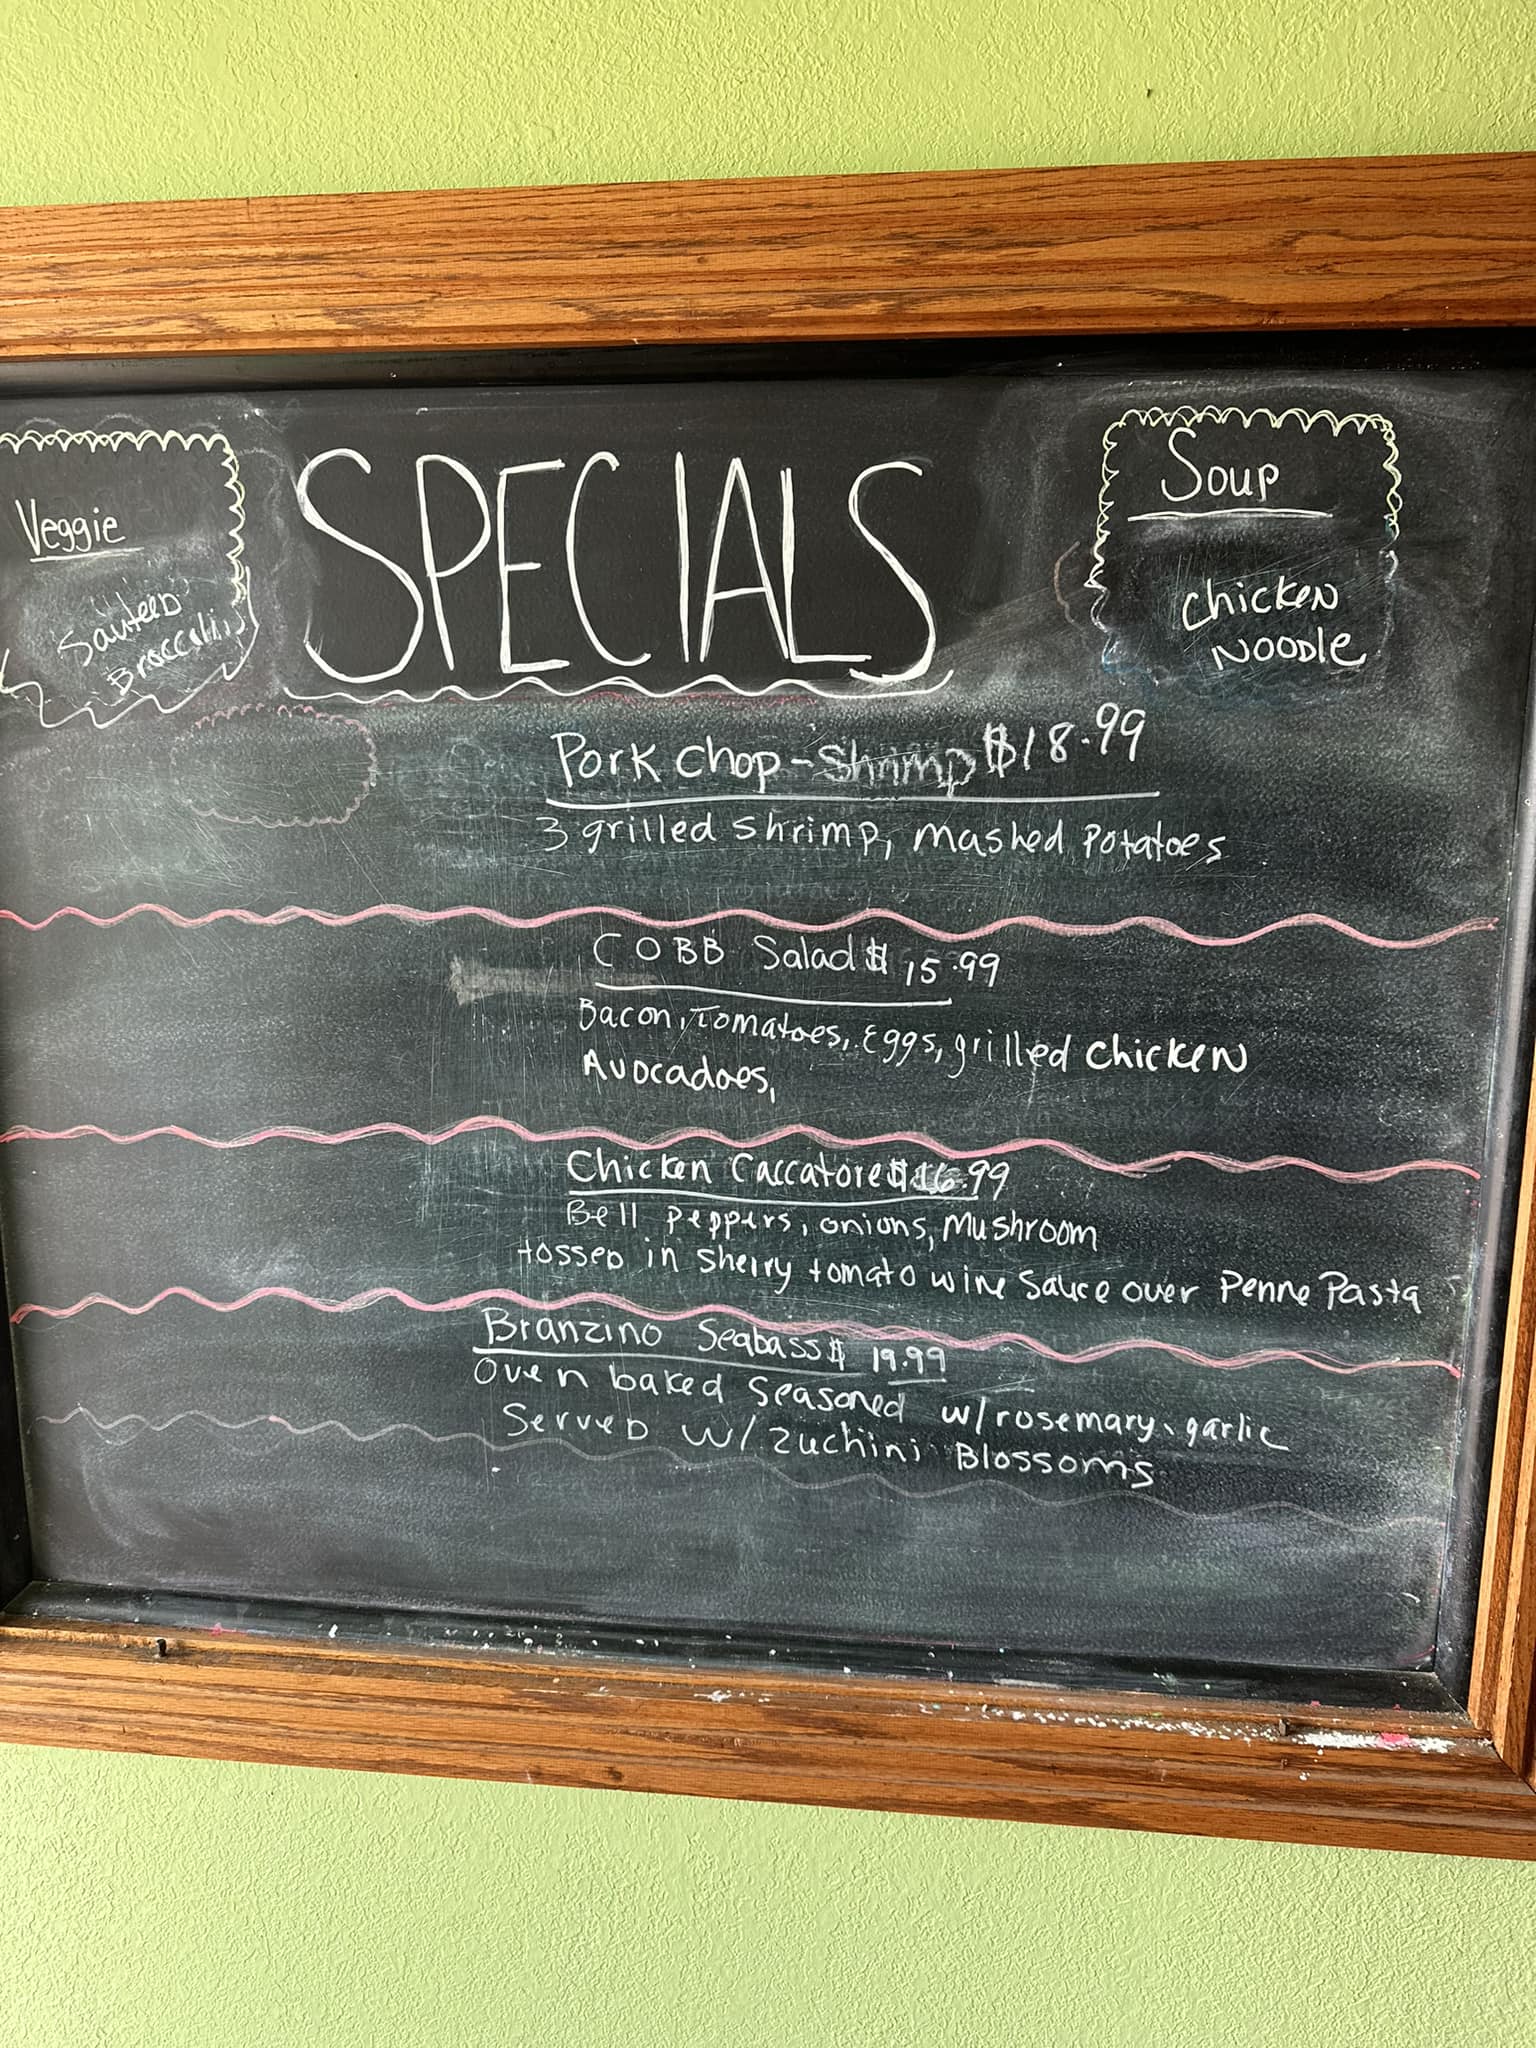 Veggie
Sauteed
Broccolini
SPECIALS
Soup
Chicken
Noodle
Pork Chop - Shrimp $18.99
3 grilled shrimp, mashed potatoes
COBB Salad $ 15.99
Bacon, Tomatoes, Eggs, grilled Chicken
Avocadoes,
Chicken Caccatore $16.99
Bell peppers, onions, Mushroom
tossed in sherry tomato wine sauce over Penne Pasta
Branzino Seabass $ 19.99
Oven baked seasoned w/rosemary, garlic
Served w/ zuchini Blossoms